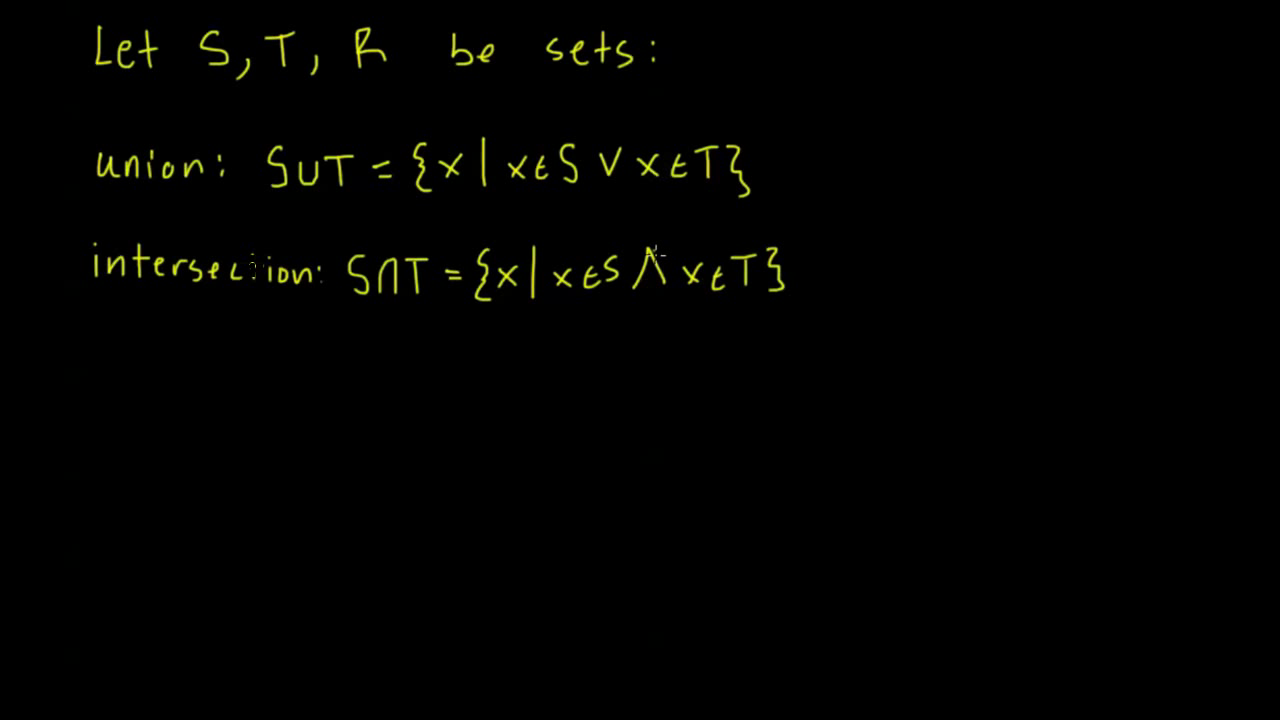 Let S, T, R be sets:
union: S∪T = {x | x∈S ∨ x∈T}
intersection: S∩T = {x | x∈S ∧ x∈T}